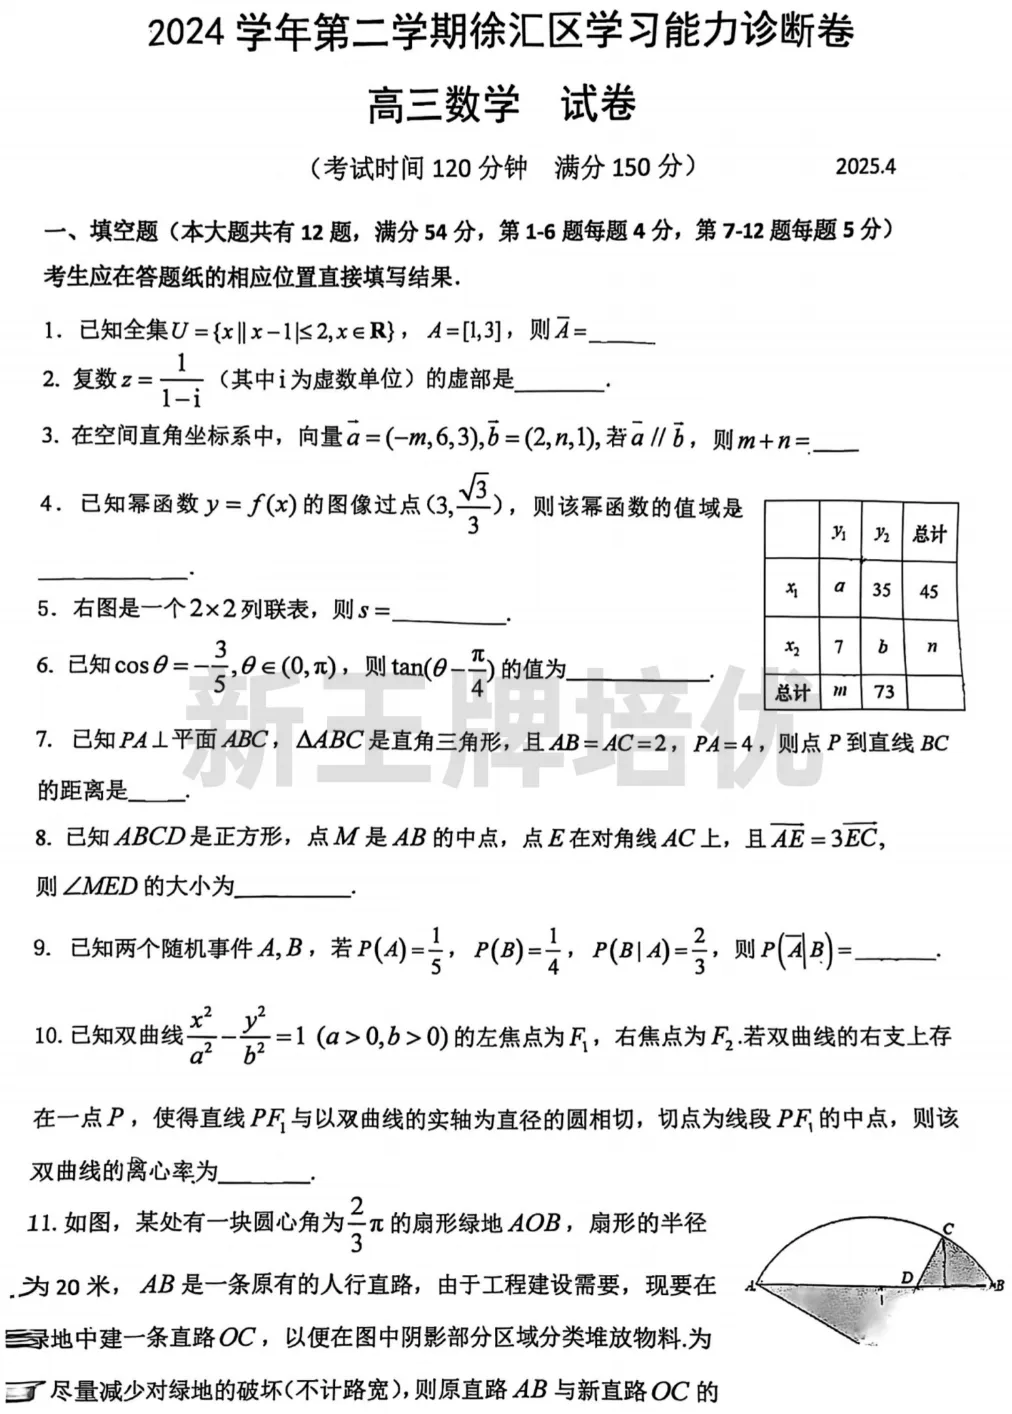 2024 学年第二学期徐汇区学习能力诊断卷
高三数学 试卷
（考试时间 120 分钟 满分 150 分） 2025.4
一、填空题（本大题共有 12 题，满分 54 分，第 1-6 题每题 4 分，第 7-12 题每题 5 分）
考生应在答题纸的相应位置直接填写结果.
1. 已知全集 U = {x || x − 1 |≤ 2, x ∈ R}， A = [1,3]，则 A̅ = ______
2. 复数 z = 1/(1−i) （其中 i 为虚数单位）的虚部是________.
3. 在空间直角坐标系中，向量 a⃗ = (−m,6,3), b⃗ = (2,n,1), 若 a⃗ // b⃗，则 m + n = ____
4. 已知幂函数 y = f(x) 的图像过点 (3, √3/3)，则该幂函数的值域是
____________.
5. 右图是一个 2×2 列联表，则 s = _________.
y₁ y₂ 总计
x₁ a 35 45
x₂ 7 b n
总计 m 73
6. 已知 cosθ = −3/5, θ ∈ (0, π)，则 tan(θ − π/4) 的值为____________.
新王牌培优
7. 已知 PA ⊥ 平面 ABC，△ABC 是直角三角形，且 AB = AC = 2，PA = 4，则点 P 到直线 BC
的距离是_____.
8. 已知 ABCD 是正方形，点 M 是 AB 的中点，点 E 在对角线 AC 上，且 AE⃗ = 3EC⃗,
则 ∠MED 的大小为__________.
9. 已知两个随机事件 A, B，若 P(A) = 1/5，P(B) = 1/4，P(B | A) = 2/3，则 P(A̅|B) = _______.
10. 已知双曲线 x²/a² − y²/b² = 1 (a > 0, b > 0) 的左焦点为 F₁，右焦点为 F₂.若双曲线的右支上存
在一点 P，使得直线 PF₁ 与以双曲线的实轴为直径的圆相切，切点为线段 PF₁ 的中点，则该
双曲线的离心率为________.
11. 如图，某处有一块圆心角为 2/3 π 的扇形绿地 AOB，扇形的半径
为 20 米， AB 是一条原有的人行直路，由于工程建设需要，现要在
绿地中建一条直路 OC，以便在图中阴影部分区域分类堆放物料.为
尽量减少对绿地的破坏(不计路宽)，则原直路 AB 与新直路 OC 的
A
B
C
D